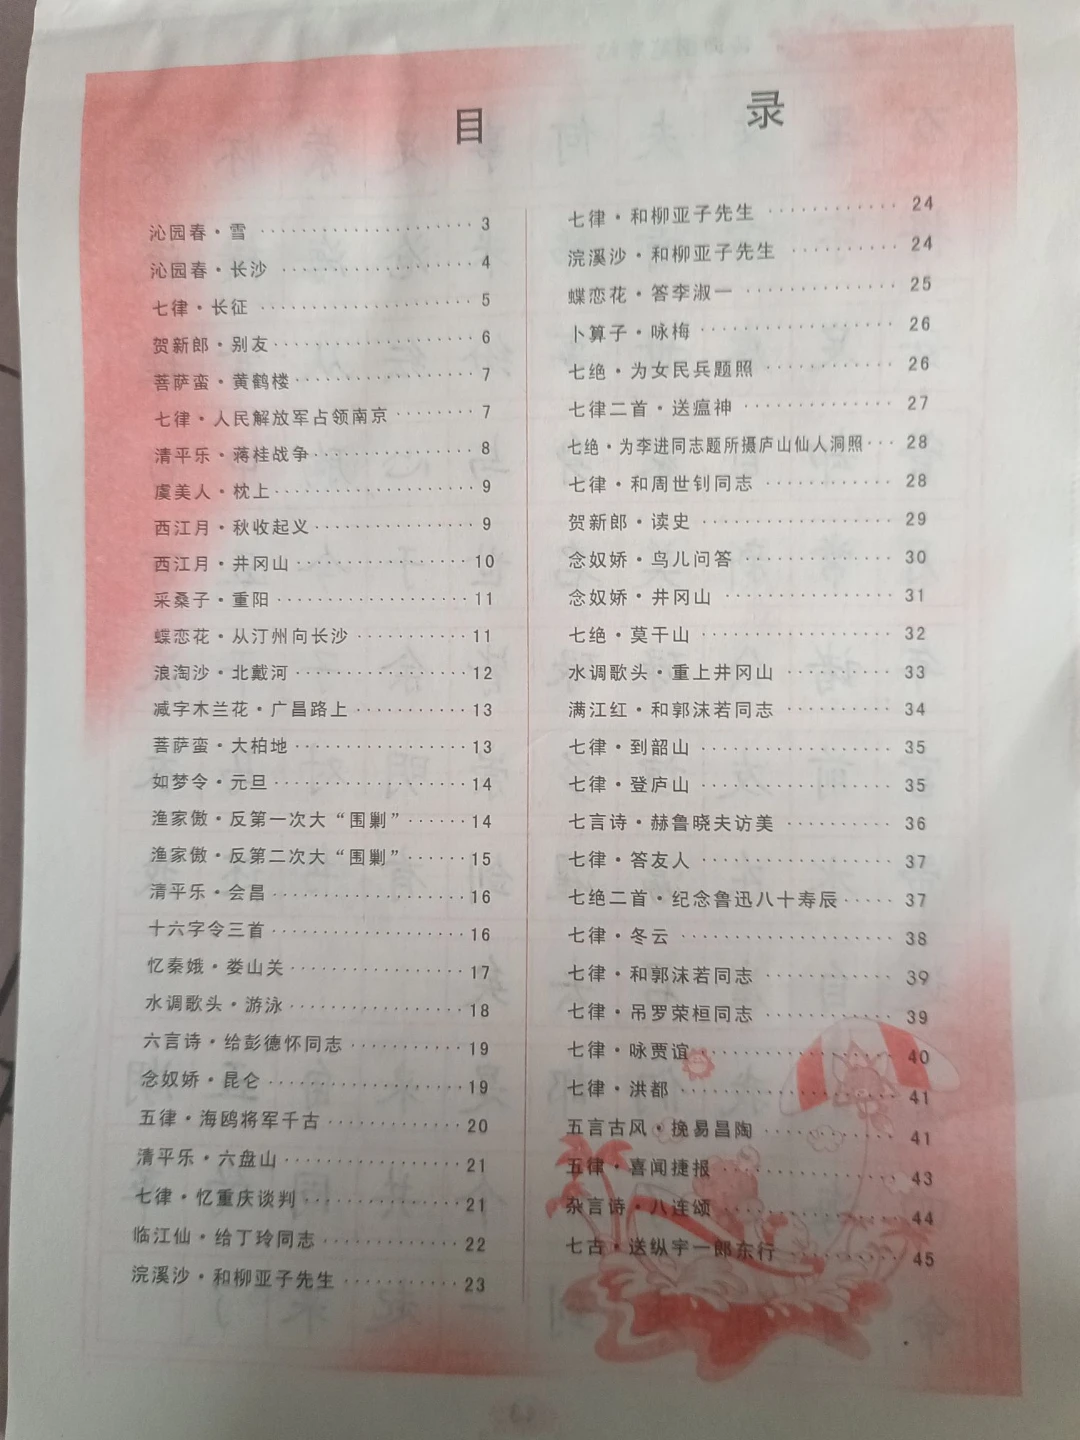 目 录
沁园春·雪 ······················ 3
沁园春·长沙 ···················· 4
七律·长征 ······················ 5
贺新郎·别友···················· 6
菩萨蛮·黄鹤楼·················· 7
七律·人民解放军占领南京 ········ 7
清平乐·蒋桂战争················ 8
虞美人·枕上···················· 9
西江月·秋收起义················ 9
西江月·井冈山················· 10
采桑子·重阳 ··················· 11
蝶恋花·从汀州向长沙 ··········· 11
浪淘沙·北戴河················· 12
减字木兰花·广昌路上 ··········· 13
菩萨蛮·大柏地 ················· 13
如梦令·元旦··················· 14
渔家傲·反第一次大“围剿”······ 14
渔家傲·反第二次大“围剿”······ 15
清平乐·会昌··················· 16
十六字令三首··················· 16
忆秦娥·娄山关················· 17
水调歌头·游泳················· 18
六言诗·给彭德怀同志 ··········· 19
念奴娇·昆仑 ··················· 19
五律·海鸥将军千古 ············· 20
清平乐·六盘山 ················· 21
七律·忆重庆谈判 ··············· 21
临江仙·给丁玲同志 ············· 22
浣溪沙·和柳亚子先生 ··········· 23
七律·和柳亚子先生 ············ 24
浣溪沙·和柳亚子先生 ·········· 24
蝶恋花·答李淑一 ·············· 25
卜算子·咏梅 ·················· 26
七绝·为女民兵题照 ············ 26
七律二首·送瘟神 ·············· 27
七绝·为李进同志题所摄庐山仙人洞照··· 28
七律·和周世钊同志 ············ 28
贺新郎·读史 ·················· 29
念奴娇·鸟儿问答 ·············· 30
念奴娇·井冈山 ················ 31
七绝·莫干山 ·················· 32
水调歌头·重上井冈山 ·········· 33
满江红·和郭沫若同志 ·········· 34
七律·到韶山 ·················· 35
七律·登庐山 ·················· 35
七言诗·赫鲁晓夫访美 ·········· 36
七律·答友人 ·················· 37
七绝二首·纪念鲁迅八十寿辰····· 37
七律·冬云 ···················· 38
七律·和郭沫若同志 ············ 39
七律·吊罗荣桓同志 ············ 39
七律·咏贾谊 ·················· 40
七律·洪都 ···················· 41
五言古风·挽易昌陶 ············ 41
五律·喜闻捷报 ················ 43
杂言诗·八连颂 ················ 44
七古·送纵宇一郎东行 ·········· 45